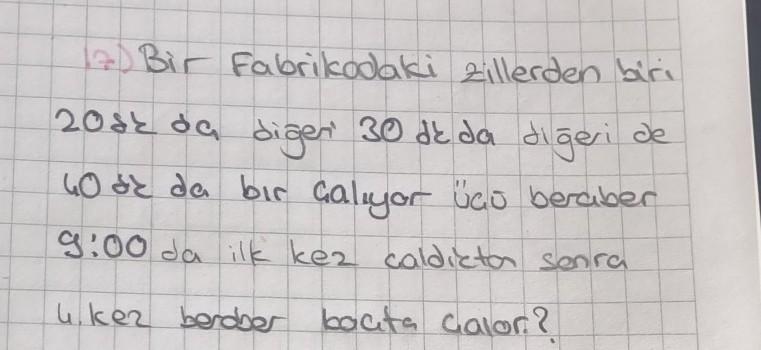 17) Bir Fabrikadaki zillerden biri
20 dk da diğeri 30 dk da diğeri de
40 dk da bir çalıyor üçü beraber
9:00 da ilk kez çaldıktan sonra
4. kez beraber kaçta çalar?